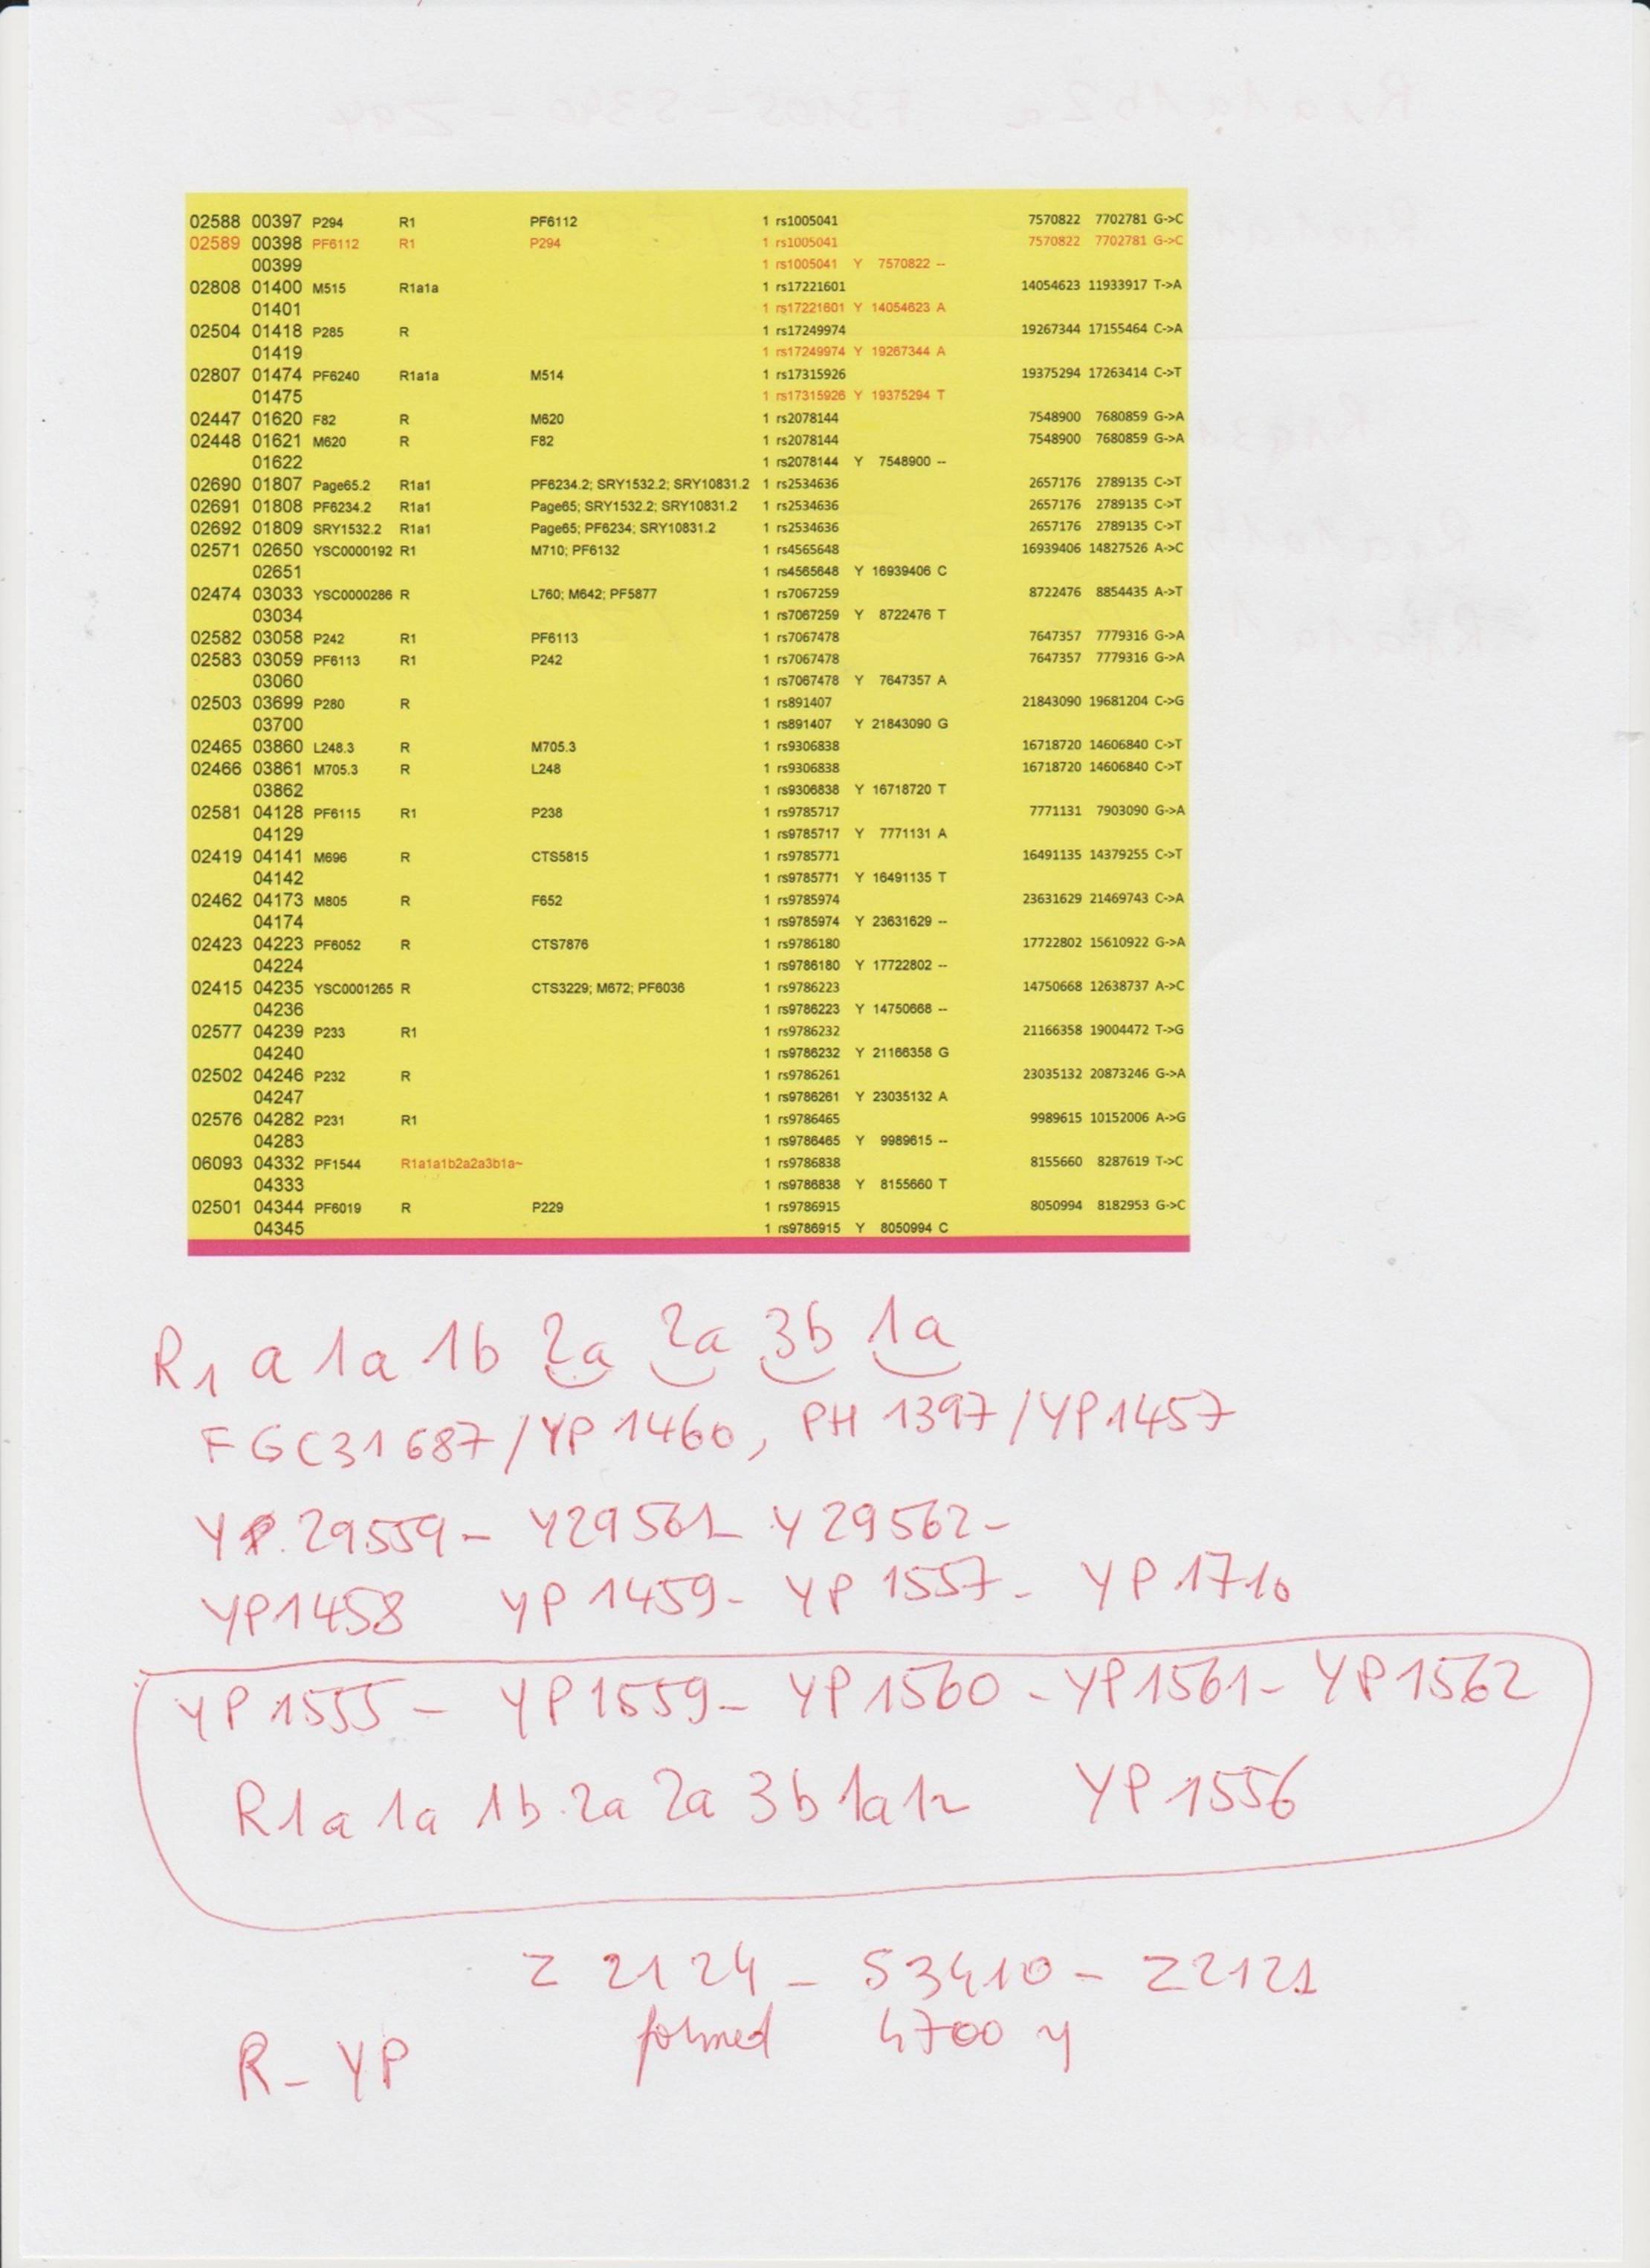 02588 00397 P294 R1 PF6112 1 rs1005041 7570822 7702781 G->C
02589 00398 PF6112 R1 P294 1 rs1005041 7570822 7702781 G->C
00399 1 rs1005041 Y 7570822 --
02808 01400 M515 R1a1a 1 rs17221601 14054623 11933917 T->A
01401 1 rs17221601 Y 14054623 A
02504 01418 P285 R 1 rs17249974 19267344 17155464 C->A
01419 1 rs17249974 Y 19267344 A
02807 01474 PF6240 R1a1a M514 1 rs17315926 19375294 17263414 C->T
01475 1 rs17315926 Y 19375294 T
02447 01620 F82 R M620 1 rs2078144 7548900 7680859 G->A
02448 01621 M620 R F82 1 rs2078144 7548900 7680859 G->A
01622 1 rs2078144 Y 7548900 --
02690 01807 Page65.2 R1a1 PF6234.2; SRY1532.2; SRY10831.2 1 rs2534636 2657176 2789135 C->T
02691 01808 PF6234.2 R1a1 Page65; SRY1532.2; SRY10831.2 1 rs2534636 2657176 2789135 C->T
02692 01809 SRY1532.2 R1a1 Page65; PF6234; SRY10831.2 1 rs2534636 2657176 2789135 C->T
02571 02650 YSC0000192 R1 M710; PF6132 1 rs4565648 16939406 14827526 A->C
02651 1 rs4565648 Y 16939406 C
02474 03033 YSC0000286 R L760; M642; PF5877 1 rs7067259 8722476 8854435 A->T
03034 1 rs7067259 Y 8722476 T
02582 03058 P242 R1 PF6113 1 rs7067478 7647357 7779316 G->A
02583 03059 PF6113 R1 P242 1 rs7067478 7647357 7779316 G->A
03060 1 rs7067478 Y 7647357 A
02503 03699 P280 R 1 rs891407 21843090 19681204 C->G
03700 1 rs891407 Y 21843090 G
02465 03860 L248.3 R M705.3 1 rs9306838 16718720 14606840 C->T
02466 03861 M705.3 R L248 1 rs9306838 16718720 14606840 C->T
03862 1 rs9306838 Y 16718720 T
02581 04128 PF6115 R1 P238 1 rs9785717 7771131 7903090 G->A
04129 1 rs9785717 Y 7771131 A
02419 04141 M696 R CTS5815 1 rs9785771 16491135 14379255 C->T
04142 1 rs9785771 Y 16491135 T
02462 04173 M805 R F652 1 rs9785974 23631629 21469743 C->A
04174 1 rs9785974 Y 23631629 --
02423 04223 PF6052 R CTS7876 1 rs9786180 17722802 15610922 G->A
04224 1 rs9786180 Y 17722802 --
02415 04235 YSC0001265 R CTS3229; M672; PF6036 1 rs9786223 14750668 12638737 A->C
04236 1 rs9786223 Y 14750668 --
02577 04239 P233 R1 1 rs9786232 21166358 19004472 T->G
04240 1 rs9786232 Y 21166358 G
02502 04246 P232 R 1 rs9786261 23035132 20873246 G->A
04247 1 rs9786261 Y 23035132 A
02576 04282 P231 R1 1 rs9786465 9989615 10152006 A->G
04283 1 rs9786465 Y 9989615 --
06093 04332 PF1544 R1a1a1b2a2a3b1a~ 1 rs9786838 8155660 8287619 T->C
04333 1 rs9786838 Y 8155660 T
02501 04344 PF6019 R P229 1 rs9786915 8050994 8182953 G->C
04345 1 rs9786915 Y 8050994 C
R1 a 1a 1b 2a 2a 3b 1a
FGC31687/YP1460, PH1397/YP1457
Y 29559 - Y29561 - Y29562 -
YP1458 YP1459 - YP1557 - YP1710
YP1555 - YP1559 - YP1560 - YP1561 - YP1562
R1a 1a 1b 2a 2a 3b 1a1~ YP1556
Z 2124 - S3410 - Z2121
formed 4700 y
R - YP